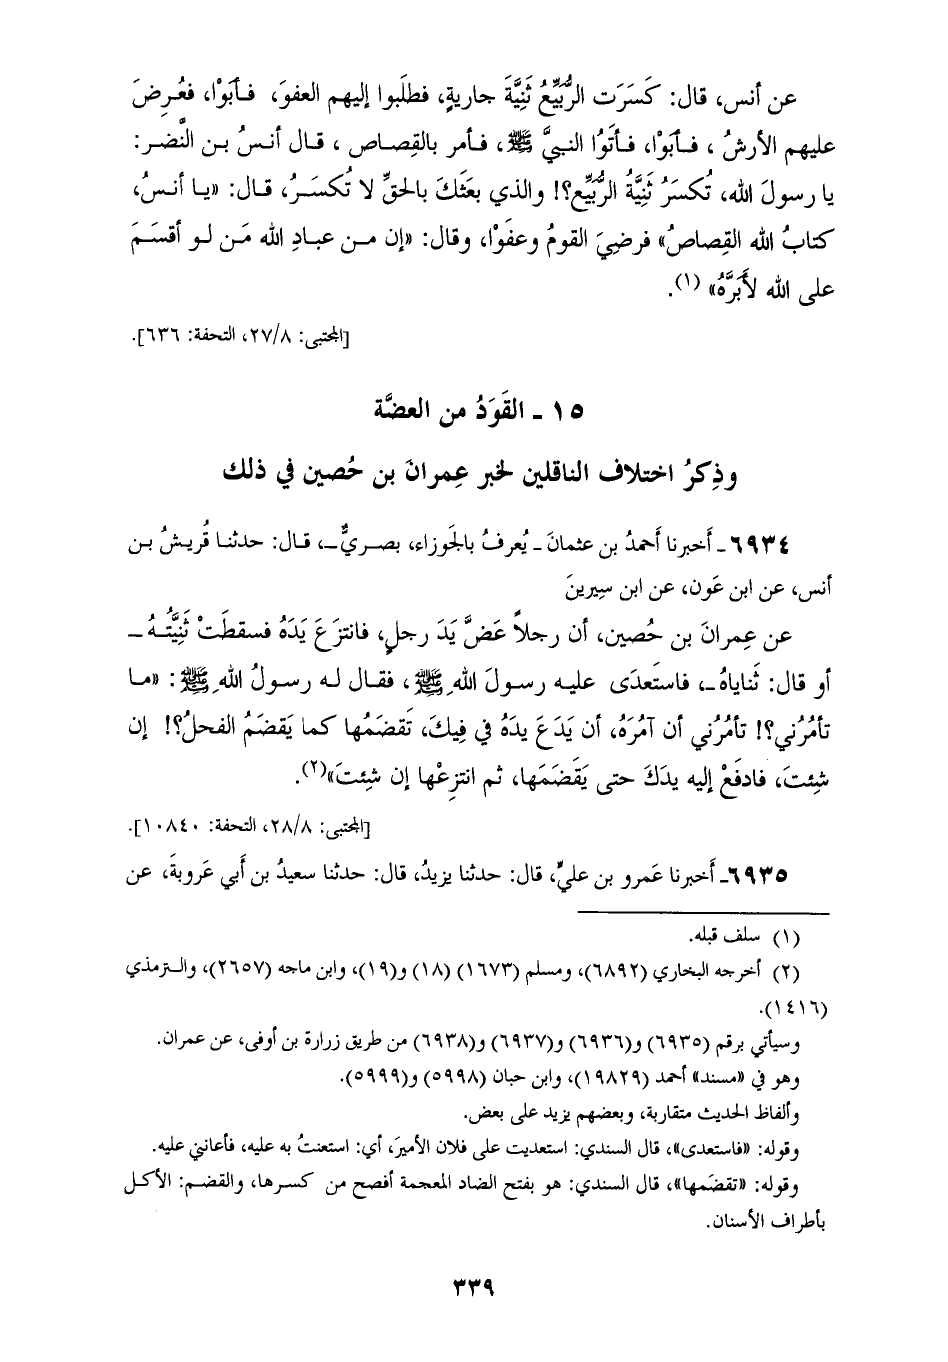 عن أنس، قال: كَسَرَت الرُّبَيِّعُ ثَنِيَّةَ جاريةٍ، فطلَبوا إليهم العفوَ، فـأبَوْا، فعُرِضَ
عليهم الأرشُ ، فـأبَوْا، فـأتَوُا النبيَّ ﷺ، فـأمر بالقِصاص ، قـال أنـسُ بـن النَّضر:
يا رسولَ الله، تُكسَرُ ثَنِيَّةُ الرُّبَيِّعِ؟! والذي بعَثَكَ بالحقِّ لا تُكسَـرُ، قـال: «يـا أنـسُ،
كتابُ الله القِصاصُ» فرضِيَ القومُ وعفَوْا، وقال: «إن مـن عبـادِ الله مَـن لـو أقسَـمَ
على الله لأَبَرَّهُ» (١).
[المجتبى: ٢٧/٨، التحفة: ٦٣٦].
١٥ - القَوَدُ من العضَّة
وذِكرُ اختلاف الناقلين لخبر عِمرانَ بن حُصين في ذلك
٦٩٣٤ - أَخبرنا أَحمدُ بن عثمانَ - يُعرفُ بالجَوزاء، بصـريٌّ -، قـال: حدثنـا قُريـشُ بـن
أنس، عن ابن عَون، عن ابن سِيرينَ
عن عِمرانَ بن حُصين، أن رجلاً عَضَّ يَدَ رجلٍ، فانتزَعَ يَدَهُ فسقطَتْ ثَنِيَّتُـهُ -
أو قال: ثَناياهُ -، فاستَعدَى عليـه رسـولَ اللهِ ﷺ ، فقـال لـه رسـولُ اللهِ ﷺ : «مـا
تأمُرُني؟! تأمُرُني أن آمُرَهُ، أن يَدَعَ يدَهُ في فِيكَ، تَقضَمُها كما يَقضَمُ الفحلُ؟! إن
شِئتَ، فادفَعْ إليه يدَكَ حتى يَقضَمَها، ثم انتزِعْها إن شِئتَ»(٢).
[المجتبى: ٢٨/٨، التحفة: ١٠٨٤٠].
٦٩٣٥- أَخبرنا عَمرو بن عليٍّ، قال: حدثنا يزيدُ، قال: حدثنا سعيدُ بن أَبي عَروبةَ، عن
(١) سلف قبله.
(٢) أخرجه البخاري (٦٨٩٢)، ومسلم (١٦٧٣) (١٨) و(١٩)، وابن ماجه (٢٦٥٧)، والـترمذي
(١٤١٦).
وسيأتي برقم (٦٩٣٥) و(٦٩٣٦) و(٦٩٣٧) و(٦٩٣٨) من طريق زرارة بن أوفى، عن عمران.
وهو في «مسند» أحمد (١٩٨٢٩)، وابن حبان (٥٩٩٨) و(٥٩٩٩).
وألفاظ الحديث متقاربة، وبعضهم يزيد على بعض.
وقوله: «فاستعدى»، قال السندي: استعديت على فلان الأميرَ، أي: استعنتُ به عليه، فأعانني عليه.
وقوله: «تقضَمها»، قال السندي: هو بفتح الضاد المعجمة أفصح من كسرها، والقضم: الأكـل
بأطراف الأسنان.
٣٣٩